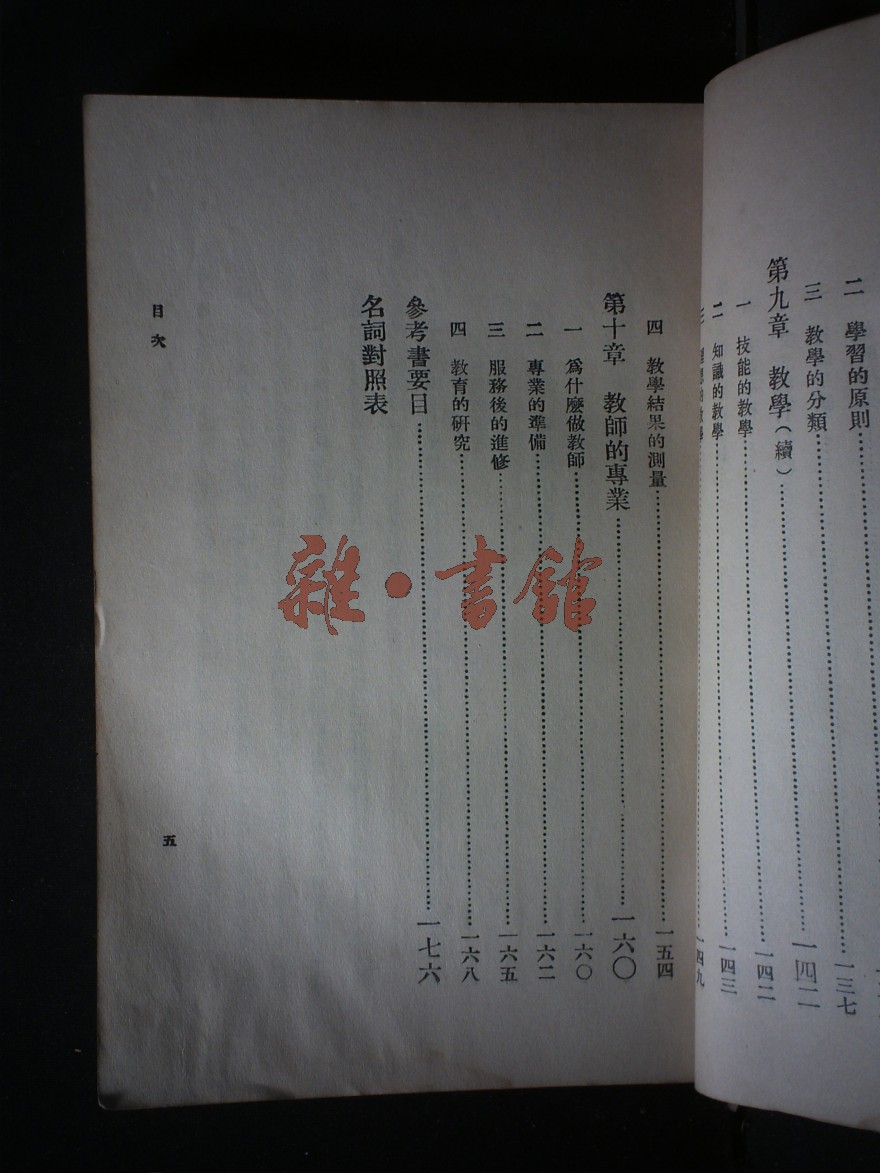 二 學習的原則
三 教學的分類……一三七
第九章 教學(續)……一四二
一 技能的教學……一四二
二 知識的教學……一四三
一四九
四 教學結果的測量……一五四
第十章 教師的專業……一六〇
一 爲什麼做教師……一六〇
二 專業的準備……一六二
三 服務後的進修……一六五
四 教育的研究……一六八
參考書要目……一七六
名詞對照表
目次
五
雜·書館